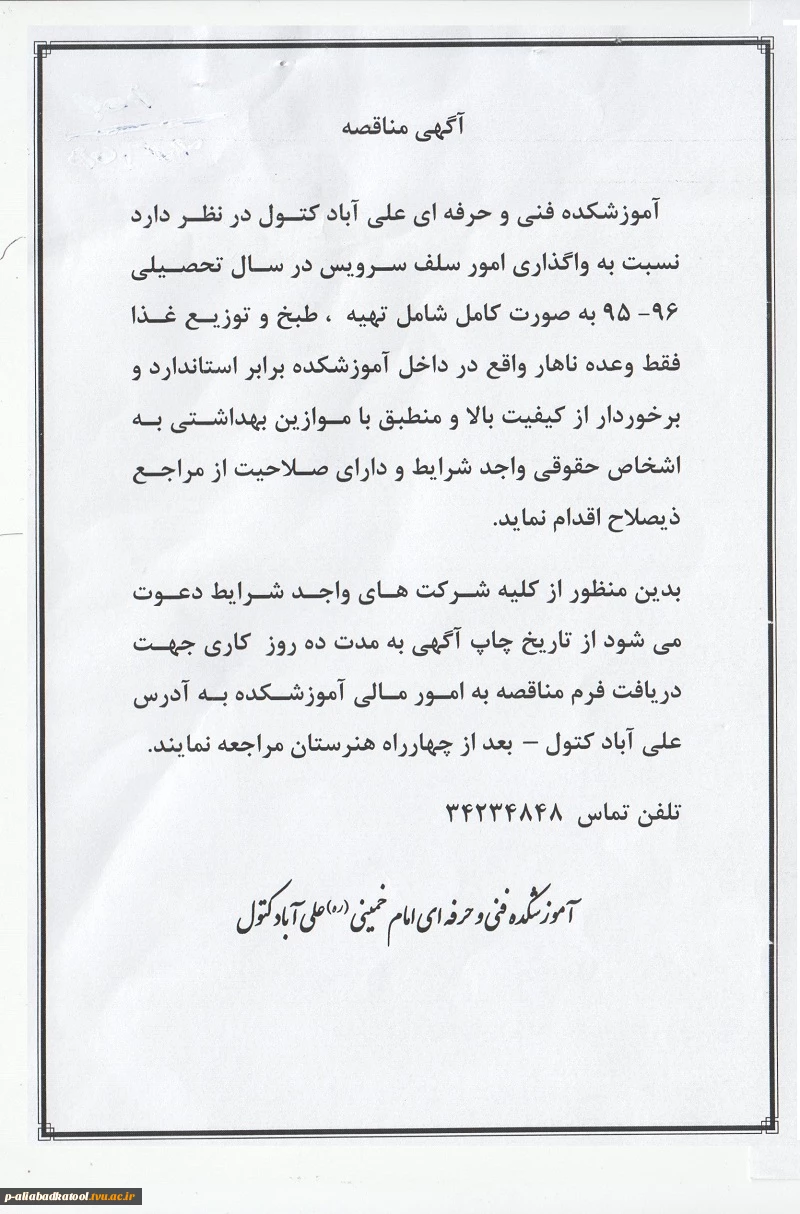 آگهی مناقصه
آموزشکده فنی و حرفه ای علی آباد کتول در نظر دارد
نسبت به واگذاری امور سلف سرویس در سال تحصیلی
۹۶- ۹۵ به صورت کامل شامل تهیه ، طبخ و توزیع غذا
فقط وعده ناهار واقع در داخل آموزشکده برابر استاندارد و
برخوردار از کیفیت بالا و منطبق با موازین بهداشتی به
اشخاص حقوقی واجد شرایط و دارای صلاحیت از مراجع
ذیصلاح اقدام نماید.
بدین منظور از کلیه شرکت های واجد شرایط دعوت
می شود از تاریخ چاپ آگهی به مدت ده روز کاری جهت
دریافت فرم مناقصه به امور مالی آموزشکده به آدرس
علی آباد کتول – بعد از چهارراه هنرستان مراجعه نمایند.
تلفن تماس ۳۴۲۳۴۸۴۸
آموزشکده فنی و حرفه ای امام خمینی (ره) علی آباد کتول
p-aliabadkatool.tvu.ac.ir